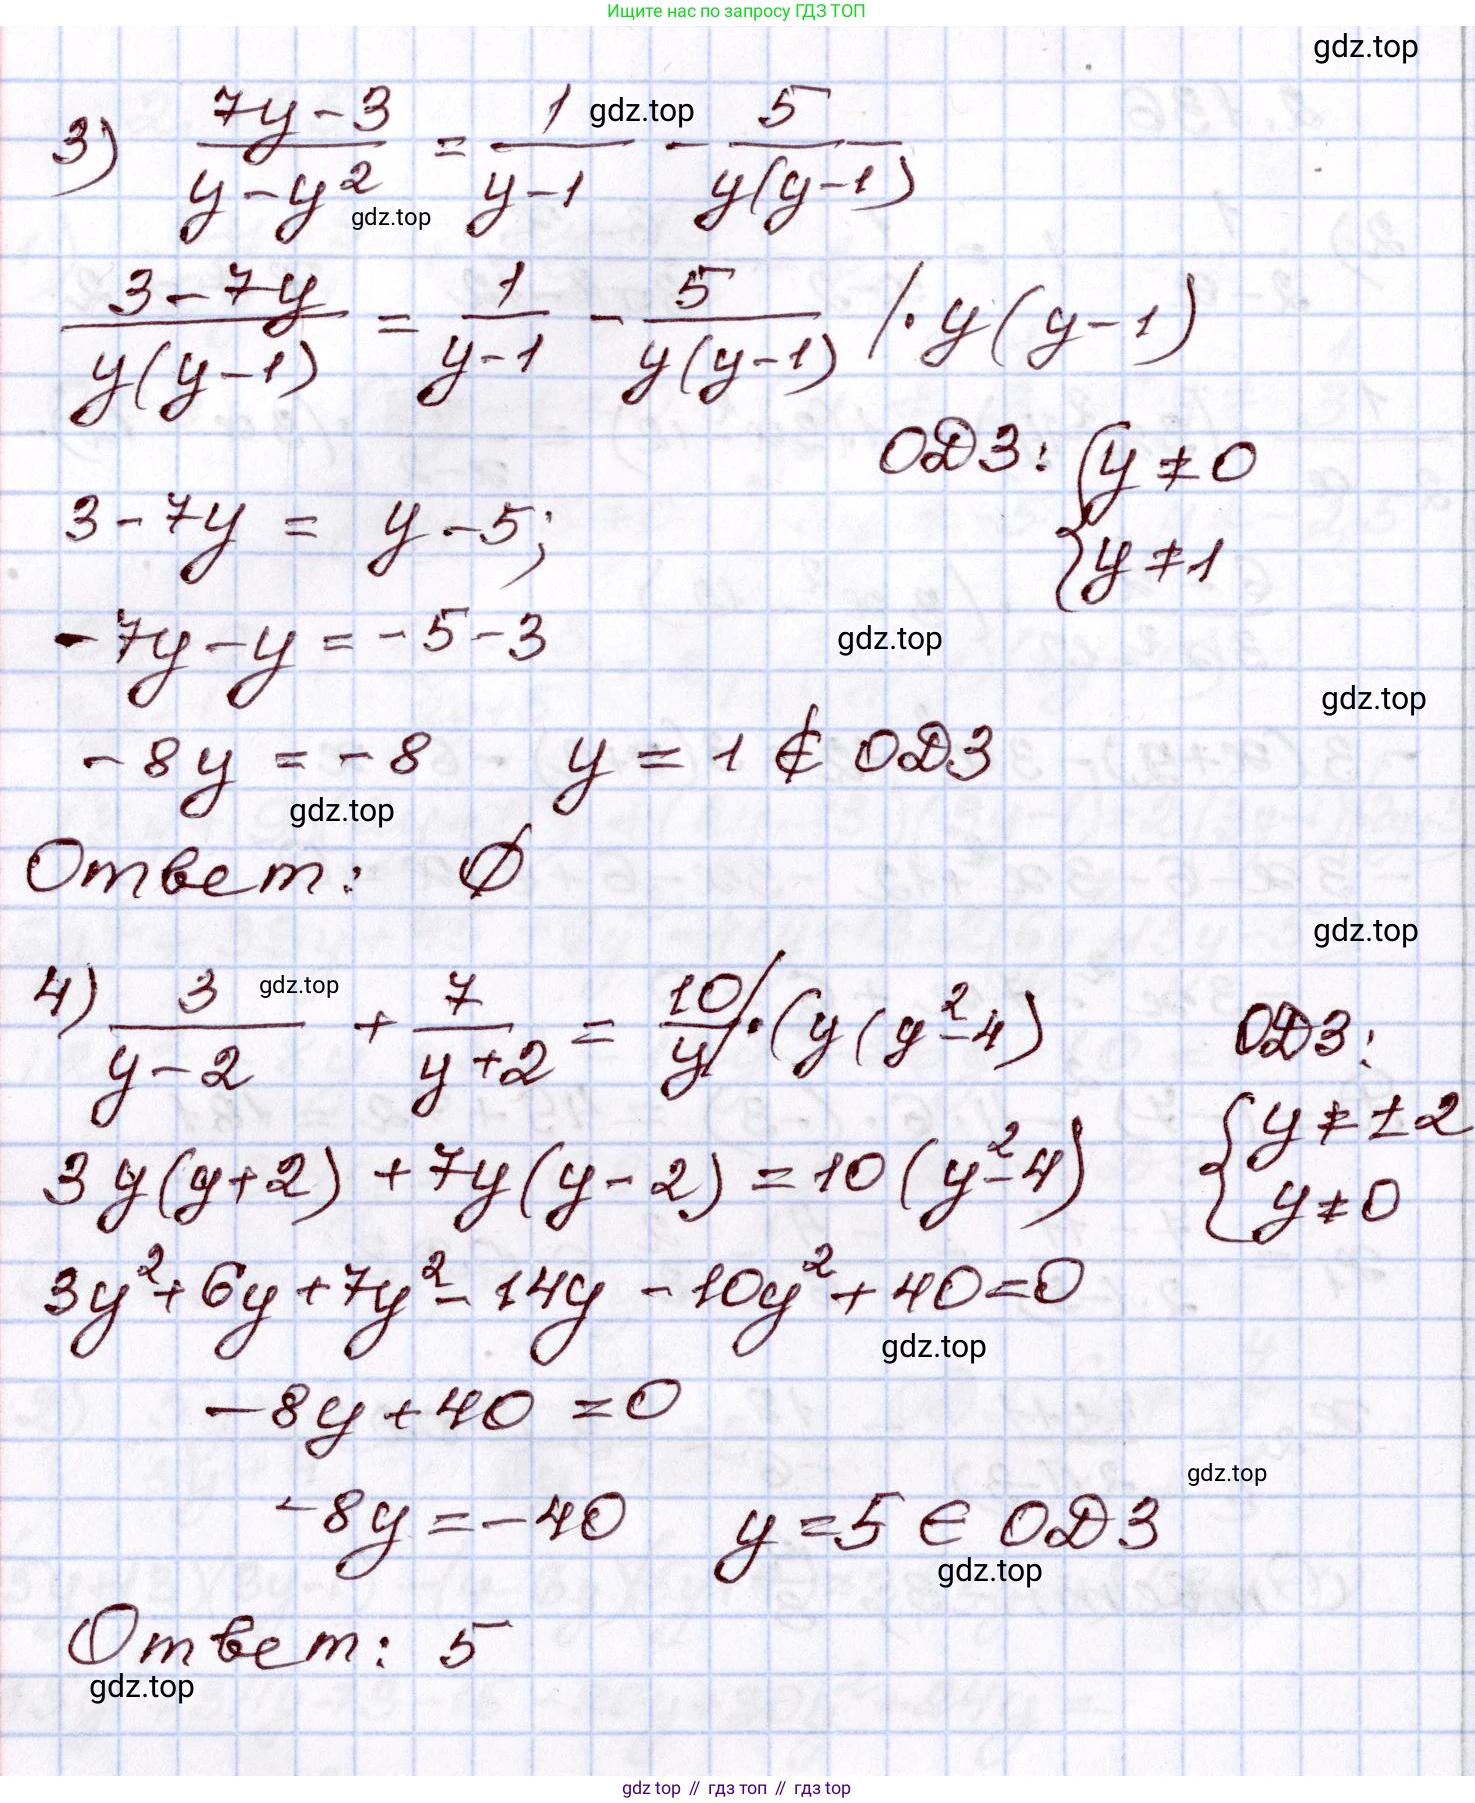 Ищите нас по запросу ГДЗ ТОП
gdz.top
3) (7y-3)/(y-y²) = 1/(y-1) - 5/(y(y-1))
gdz.top
gdz.top
(3-7y)/(y(y-1)) = 1/(y-1) - 5/(y(y-1)) /·y(y-1)
ОДЗ: { y≠0
3-7y = y-5;
y≠1
-7y-y=-5-3
gdz.top
gdz.top
-8y=-8 y=1 ∉ ОДЗ
gdz.top
Ответ: ∅
gdz.top
4) 3/(y-2) + 7/(y+2) = 10/y /·(y(y²-4) ОДЗ:
gdz.top
{ y≠±2
3y(y+2)+7y(y-2)=10(y²-4)
y≠0
3y²+6y+7y²-14y-10y²+40=0
gdz.top
-8y+40=0
gdz.top
-8y=-40 y=5 ∈ ОДЗ
gdz.top
Ответ: 5
gdz.top
gdz top // гдз топ // gdz top